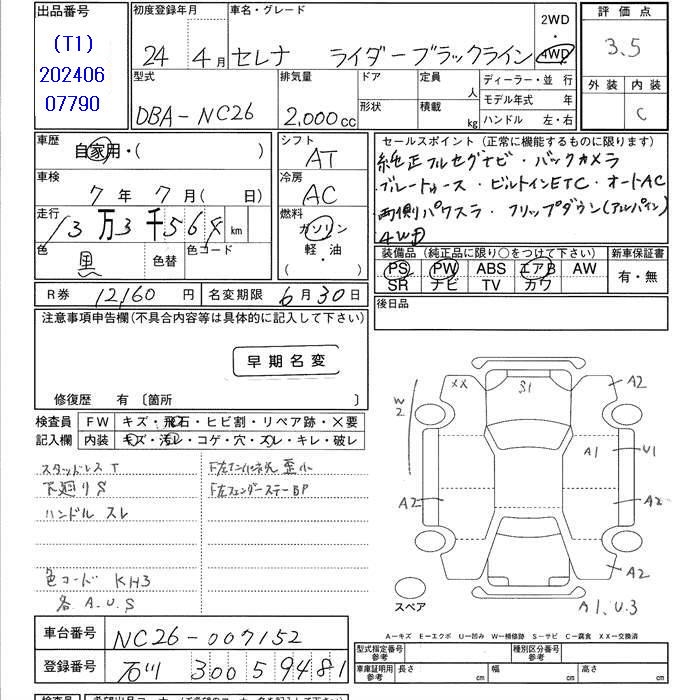 出品番号
(T1)
202406
07790
初度登録年月
24年 4月
車名・グレード
セレナ ライダーブラックライン
2WD
・
4WD
評価点
3.5
外装 内装
C
型式
DBA-NC26
排気量
2,000cc
ドア
形状
定員
人
積載
kg
ディーラー・並行
モデル年式 年
ハンドル 左・右
車歴
自家用・( )
シフト
AT
セールスポイント(正常に機能するものに限ります)
純正フルセグナビ・バックカメラ
ブルートゥース・ビルトインETC・オートAC
両側パワスラ・フリップダウン(アルパイン)
4WD
車検
7年 7月( 日)
冷房
AC
走行
13万3千564km
燃料
ガソリン
軽・油
( )
色
黒
色替
色コード
装備品(純正品に限り○をつけて下さい)
PS PW ABS エアB AW
SR ナビ TV カワ
新車保証書
有・無
R券 12,160円
名変期限 6月30日
後日品
注意事項申告欄(不具合内容等は具体的に記入して下さい)
早期名変
修復歴 有〔箇所 〕
検査員
記入欄
FW キズ・飛石・ヒビ割・リペア跡・×要
内装 キズ・汚レ・コゲ・穴・スレ・キレ・破レ
スタッドレスT
下廻りS
ハンドル スレ
色コード KH3
各A.U.S
歪小
F左フェンダーステーBP
XX
S1
A2
W2
A1
U1
A2
A2
A2
A1、U.3
スペア
A-キズ E-エクボ U-凹み W-補修跡 S-サビ C-腐食 XX-交換済
車台番号 NC26-007152
登録番号 石川 300 5 9481
型式指定番号
参考
種別区分番号
参考
車庫証明用
参考
長さ cm
幅 cm
高さ cm